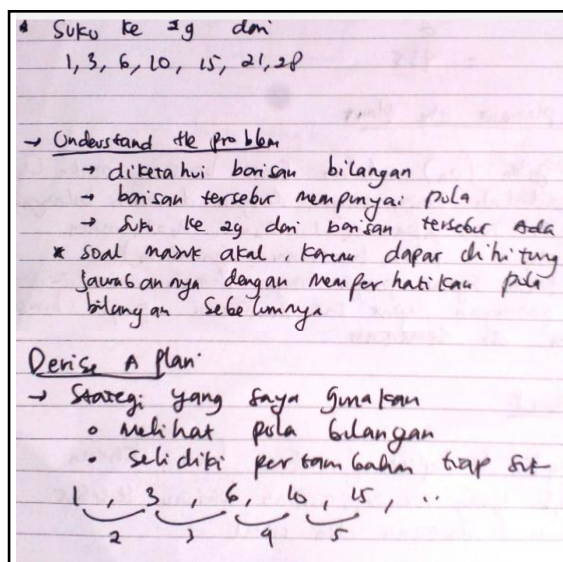 Suku ke 29 dari
1, 3, 6, 10, 15, 21, 28
→ Understand the problem
→ diketahui barisan bilangan
→ barisan tersebut mempunyai pola
→ Suku ke 29 dari barisan tersebut Ada
* soal masuk akal, karena dapat dihitung
jawabannya dengan memperhatikan pola
bilangan sebelumnya
Devise A plan
→ Stategi yang saya gunakan
• melihat pola bilangan
• selidiki pertambahan tiap
1, 3, 6, 10, 15, ..
2 3 4 5